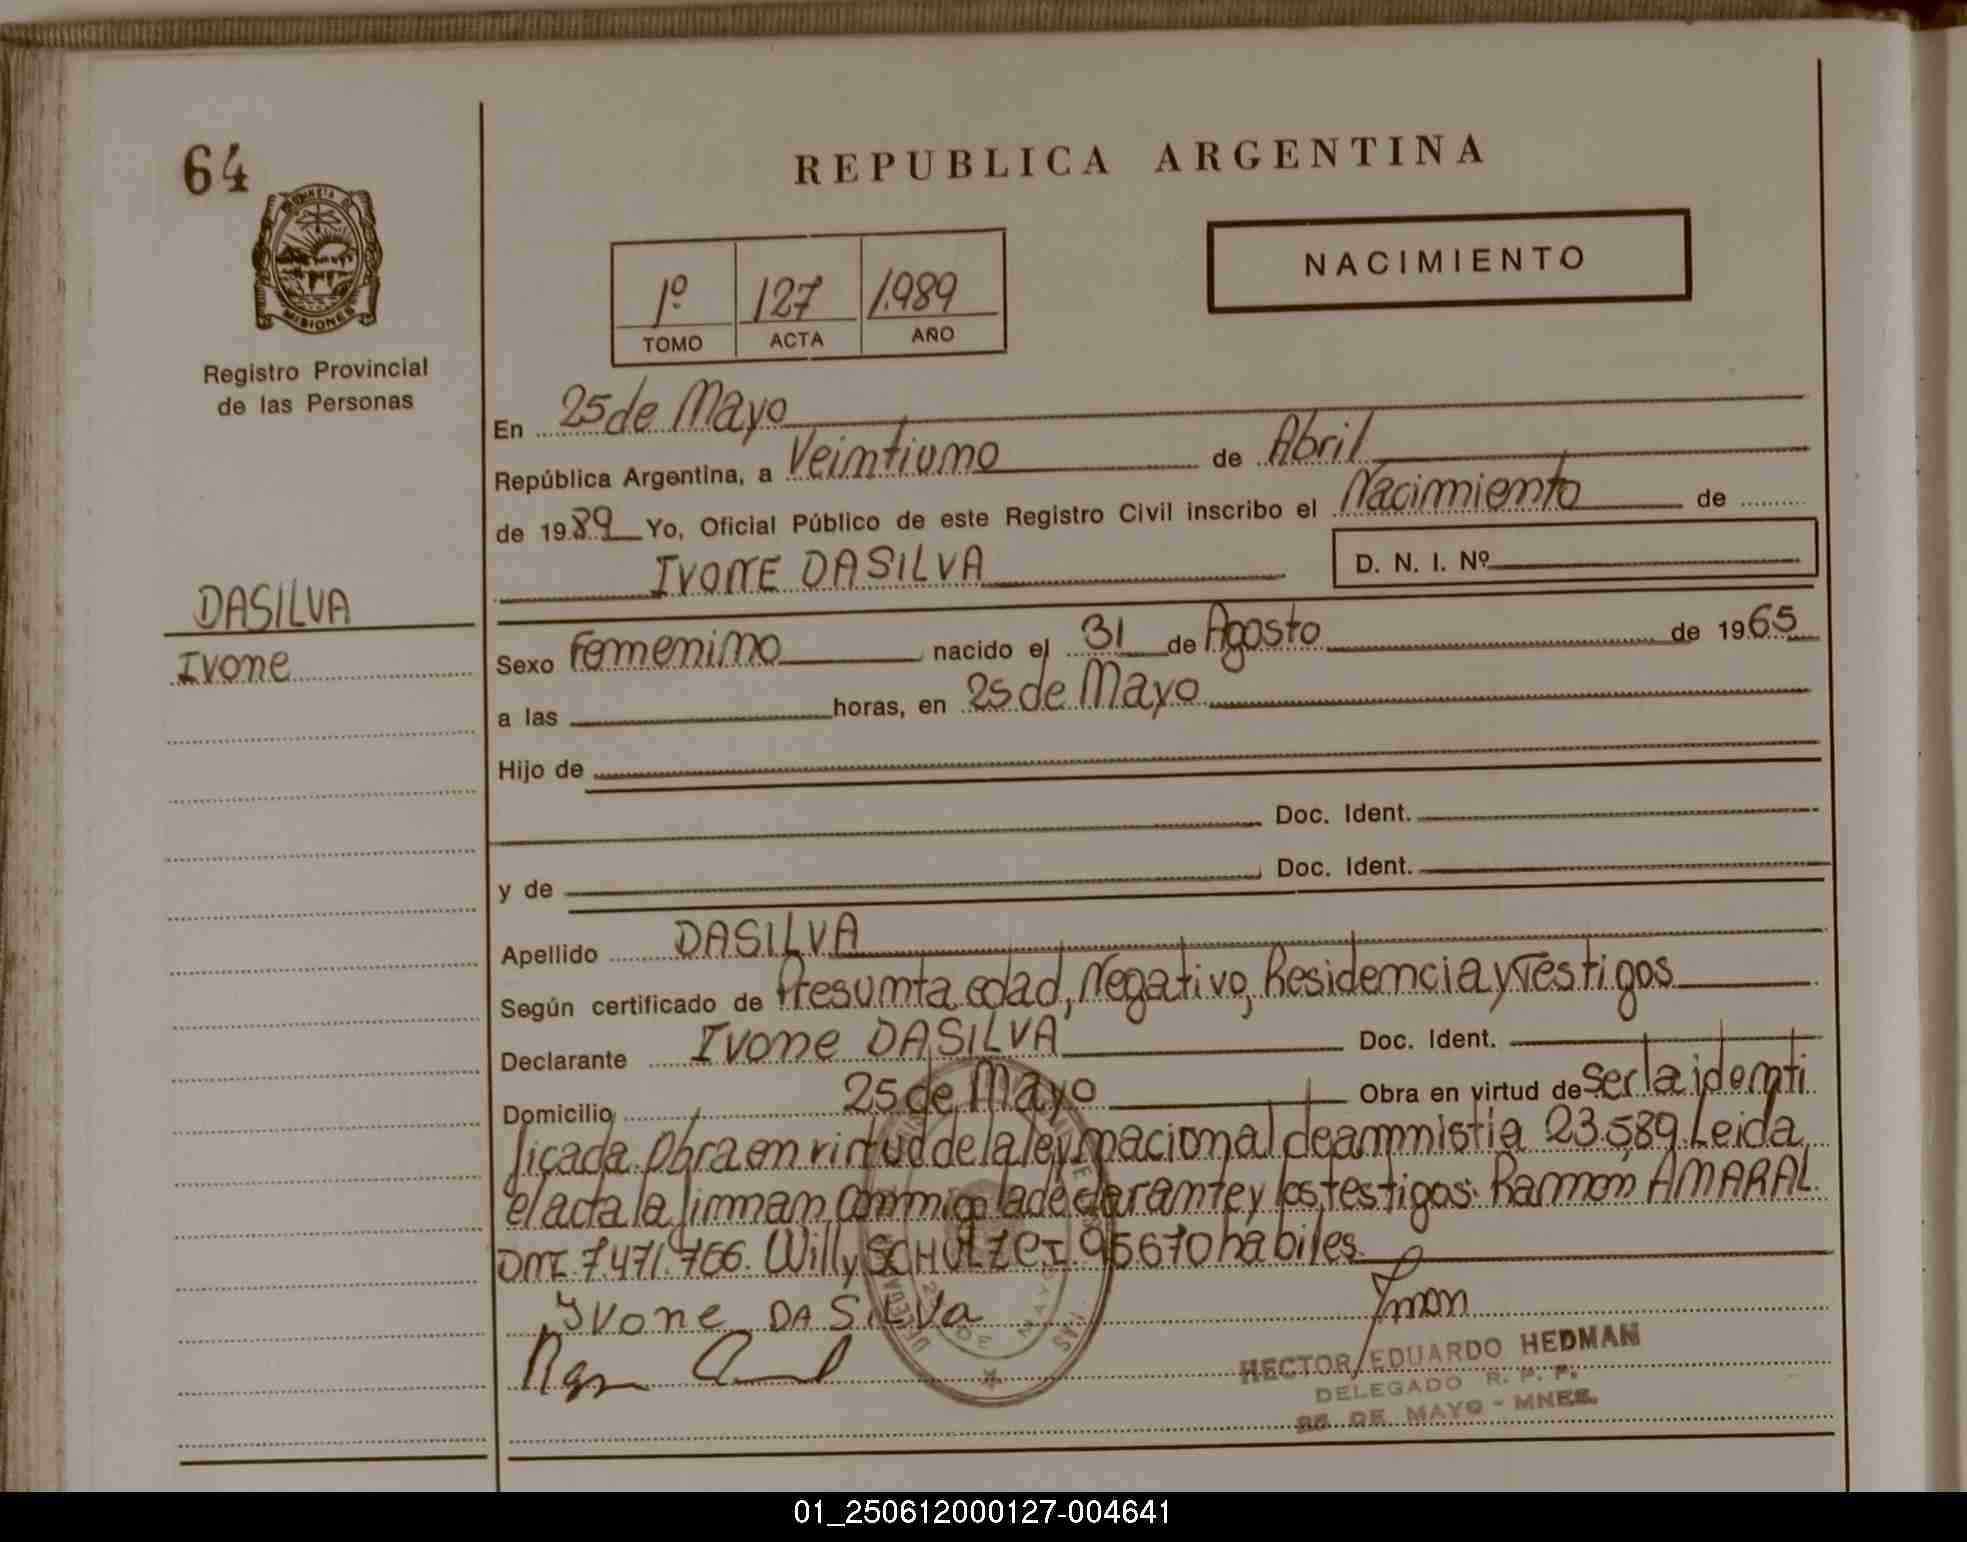 64
REPUBLICA ARGENTINA
NACIMIENTO
1º 127 1.989
TOMO ACTA AÑO
MISIONES
Registro Provincial
de las Personas
En 25 de Mayo
República Argentina, a Veintiuno de Abril
de 1989 Yo, Oficial Público de este Registro Civil inscribo el Nacimiento de
IVONE DASILVA D. N. I. Nº
DASILVA
Ivone
Sexo Femenino nacido el 31 de Agosto de 1965
a las horas, en 25 de Mayo
Hijo de
Doc. Ident.
y de Doc. Ident.
Apellido DASILVA
Según certificado de Presunta edad, Negativo, Residencia y Testigos
Declarante Ivone DASILVA Doc. Ident.
Domicilio 25 de Mayo Obra en virtud de ser la identi
ficada. Obra en virtud de la ley nacional de amnistia 23.589. Leida
el acta la firman conmigo la declarante y los testigos: Ramón AMARAL
DNI. 7.471.766. Willy SCHULZ C.I. 95670 habiles.
Yvone DA SILVa
HECTOR EDUARDO HEDMAN
DELEGADO R. P. P.
25 DE MAYO - MNES.
01_250612000127-004641